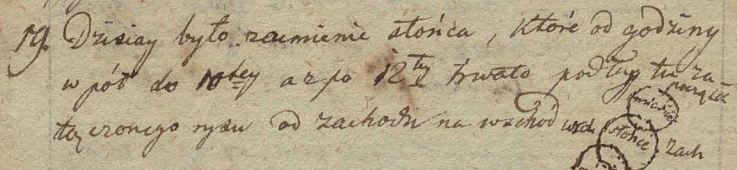 19. Dzisiay było zacmienie słońca, które od godziny
w pół do 10tey aż po 12tey trwało podług tu za
łączonego rysu od zachodu na wschód wsch. słońce zach
początek